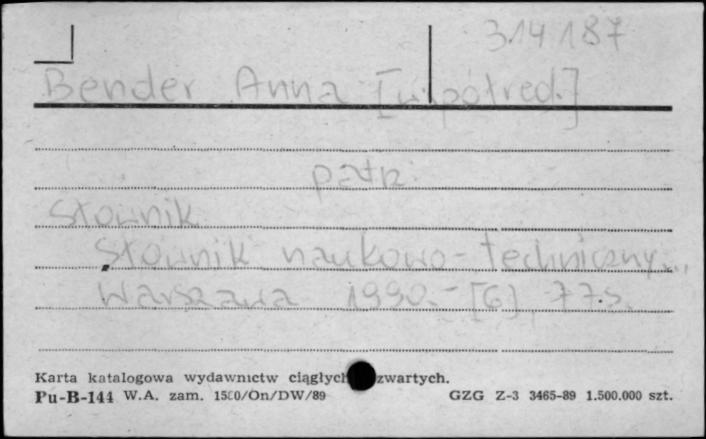 314187
Bender Anna [współred.]
patrz
Słownik
Słownik naukowo-techniczny...
Warszawa 1990.- [6], 77 s.
Karta katalogowa wydawnictw ciągłych zwartych.
Pu-B-144 W.A. zam. 1500/On/DW/89 GZG Z-3 3465-89 1.500.000 szt.